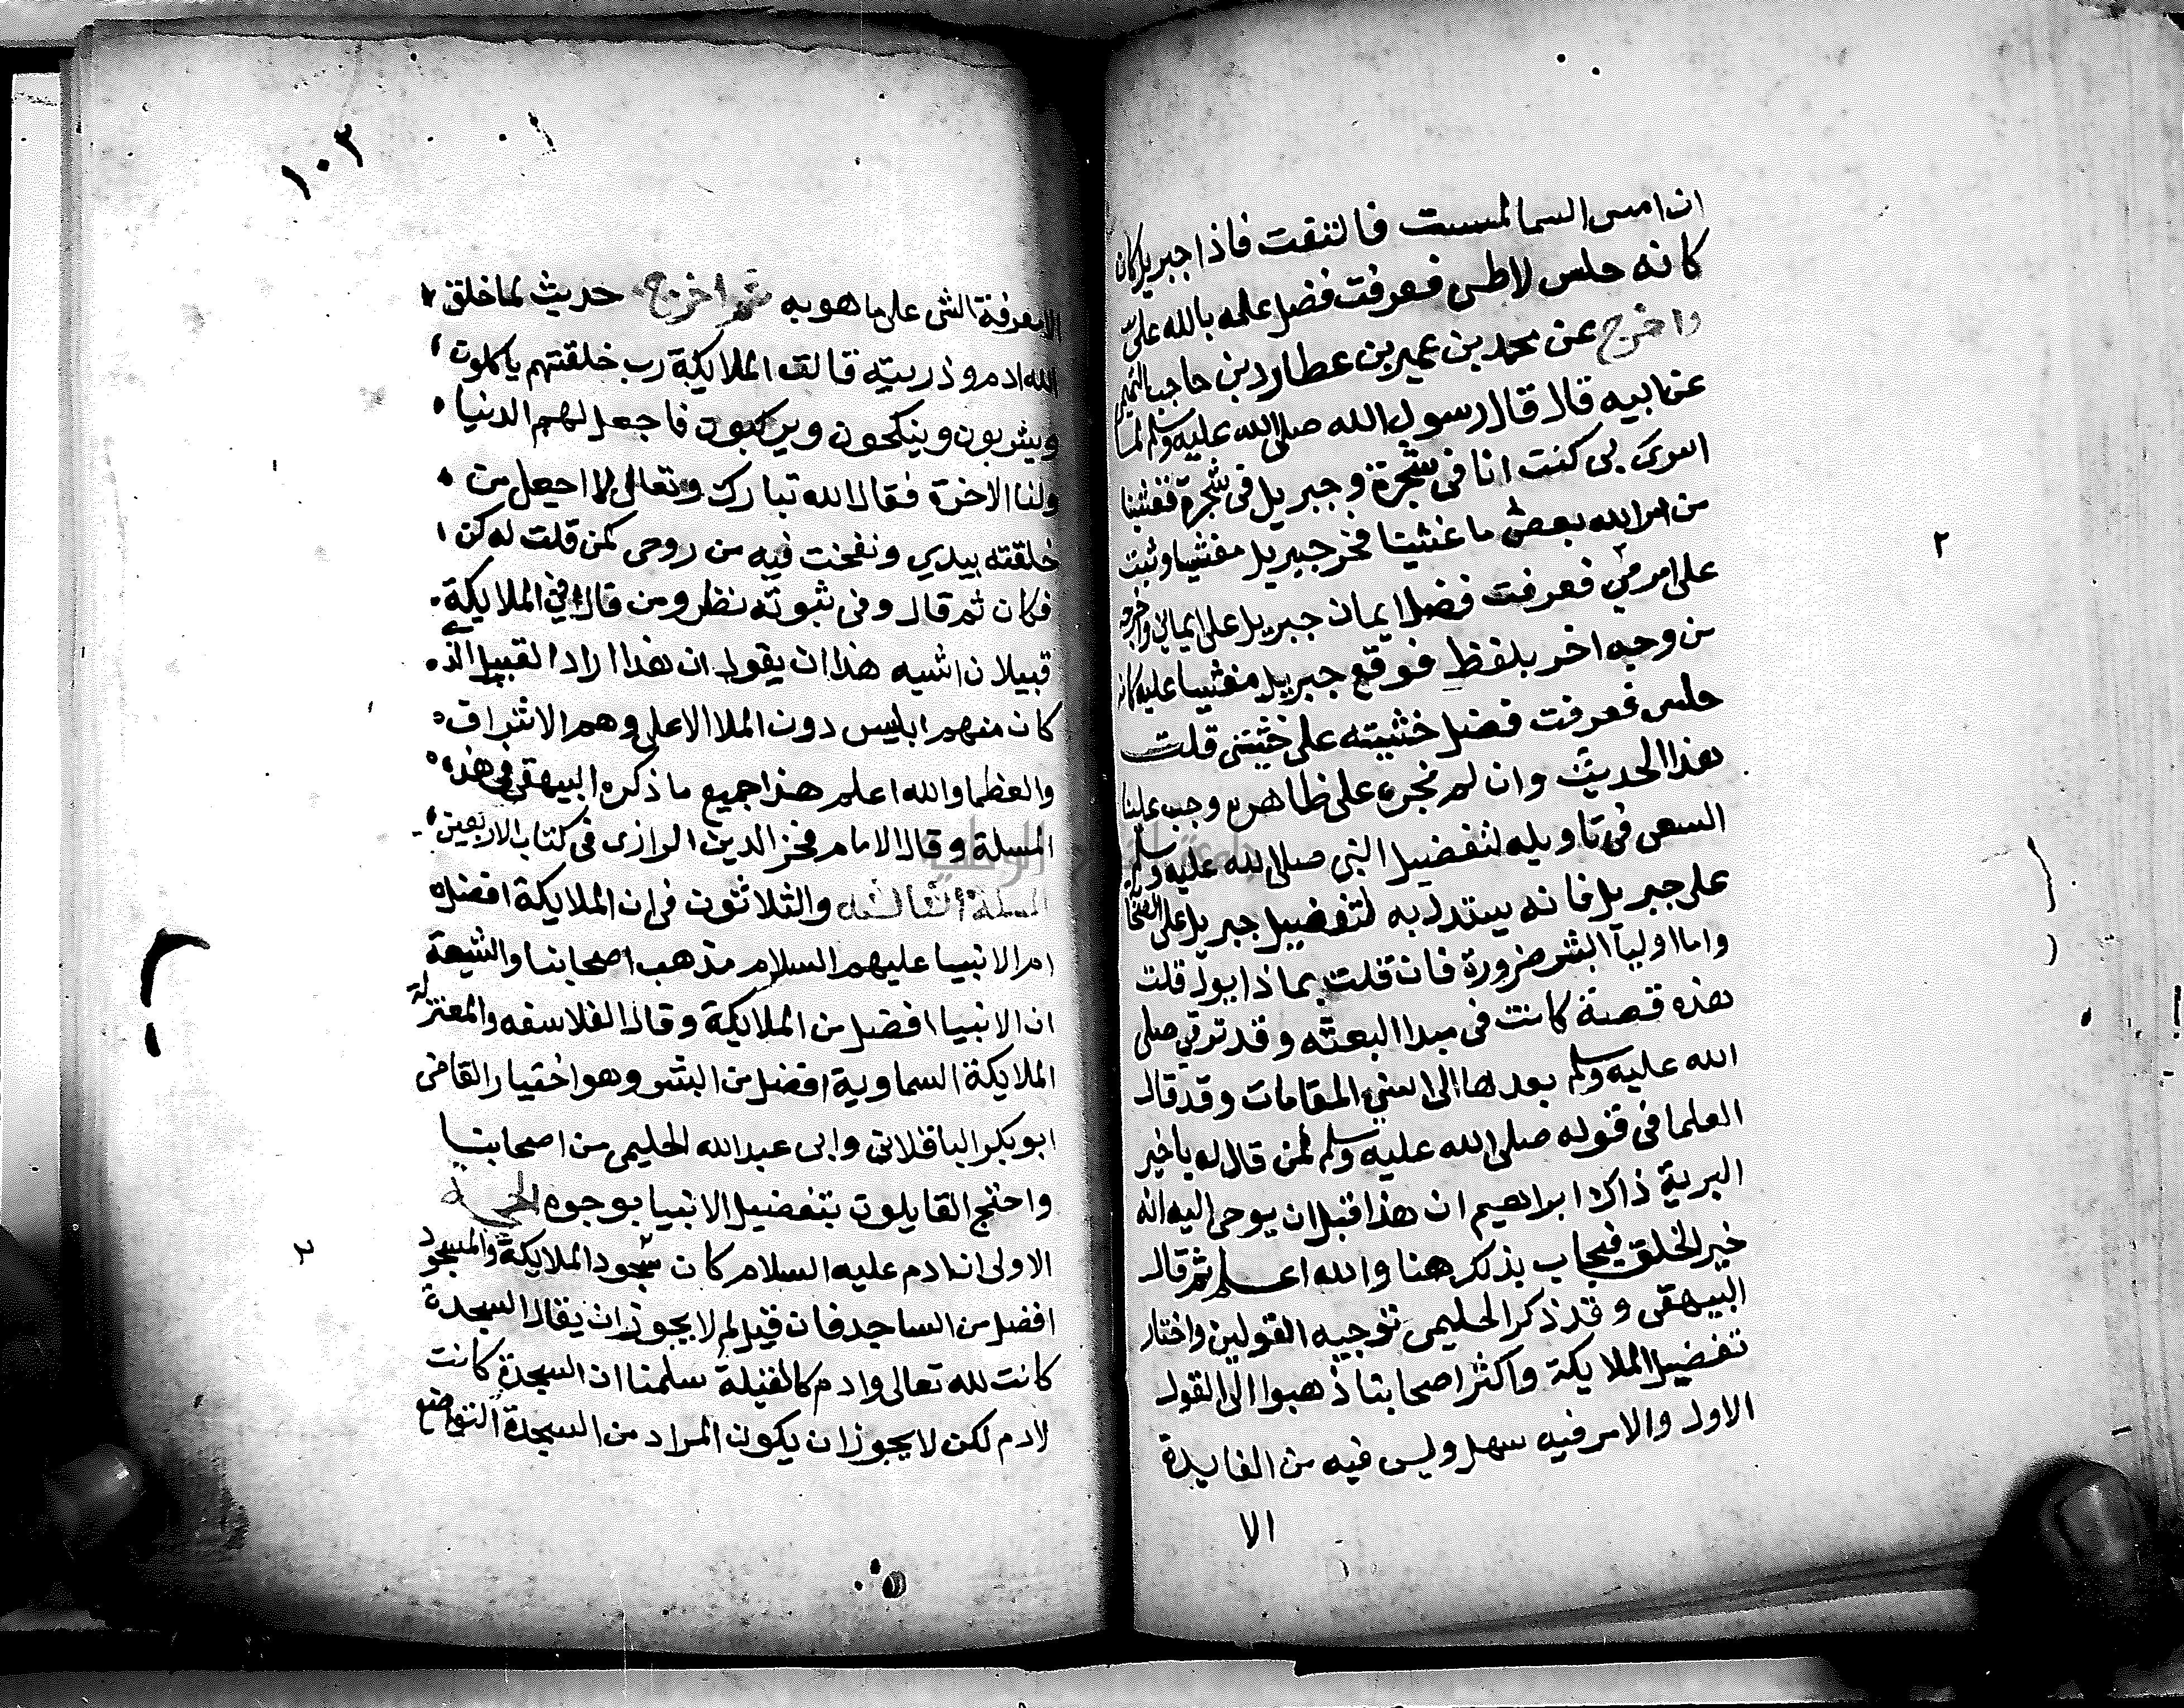 ان امس السما لمسست فالتفت فاذا جبريل كان
كانه حلس لاطى فعرفت فضل علمه بالله على
واخرج عن محمد بن عمير بن عطارد بن حاجب التميمي
عن ابيه قال قال رسول الله صلى الله عليه وسلم لما
اسرى بى كنت انا فى شجرة وجبريل فى شجرة فغشينا
من امر الله بعض ما غشينا فخر جبريل مغشيا وثبت
على امرى فعرفت فضل ايمان جبريل على ايمانى واخرجه
من وجه اخر بلفظ فوقع جبريل مغشيا عليه كانه
حلس فعرفت فضل خشيته على خشيتى قلت
هذا الحديث وان لم نجره على ظاهره وجب علينا
السعى فى تاويله لتفضيل النبى صلى الله عليه وسلم
على جبريل فانه يستدل به لتفضيل جبريل على الصحابة
واما اوليآ البشر ضرورة فان قلت بماذا يول قلت
هذه قصة كانت فى مبدا البعثه وقد ترقى صلى
الله عليه وسلم بعدها الى اسنى المقامات وقد قال
العلما فى قوله صلى الله عليه وسلم لمن قال له يا خير
البرية ذاك ابراهيم ان هذا قبل ان يوحى اليه انه
خير الخلق فيجاب بذلك هنا والله اعلم ثم قال
البيهقى وقد ذكر الحليمى توجيه القولين واختار
تفضيل الملايكة واكثر اصحابنا ذهبوا الى القول
الاول والامر فيه سهل وليس فيه من الفايدة
الا
١٠٣
الا معرفة الشى على ما هو به ثم اخرج حديث لما خلق
الله ادم وذريته قالت الملايكة رب خلقتهم ياكلون
ويشربون وينكحون ويركبون فاجعل لهم الدنيا
ولنا الاخرة فقال الله تبارك وتعالى لا اجعل من
خلقته بيدي ونفخت فيه من روحى كمن قلت له كن
فكان ثم قال وفى ثبوته نظر ومن قال فى الملايكة
قبيلان اشبه هذا ان يقول ان هذا اراد القبيل الذى
كان منهم ابليس دون الملا الاعلى وهم الاشراف
والعظما والله اعلم هذا جميع ما ذكره البيهقى فى هذه
المسلة وقال الامام فخر الدين الرازى فى كتاب الاربعين
المسلة الثالثه والثلاثون فى ان الملايكة افضل
ام الانبيا عليهم السلام مذهب اصحابنا والشيعة
ان الانبيا افضل من الملايكة وقال الفلاسفه والمعتزلة
الملايكة السماوية افضل من البشر وهو اختيار القاضى
ابو بكر الباقلانى وابى عبد الله الحليمى من اصحابنا
واحتج القايلون بتفضيل الانبيا بوجوه الحجة
الاولى ان ادم عليه السلام كان مسجود الملايكة والمسجود
افضل من الساجد فان قيل لم لا يجوز ان يقال السجدة
كانت لله تعالى وادم كالقبلة سلمنا ان السجدة كانت
لادم لكن لا يجوز ان يكون المراد من السجدة التواضع